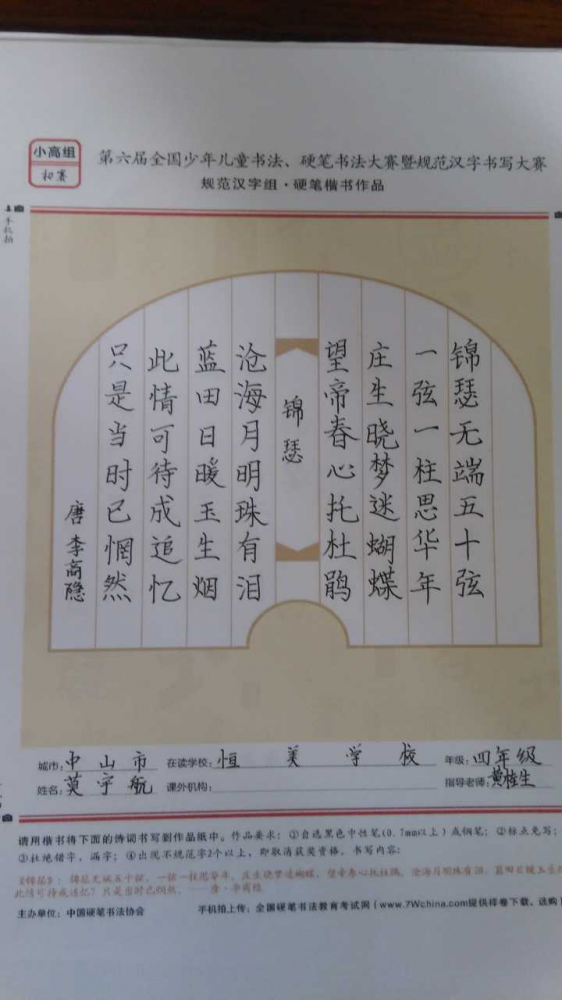 小高组
初赛
第六届全国少年儿童书法、硬笔书法大赛暨规范汉字书写大赛
规范汉字组·硬笔楷书作品
手机拍
锦瑟无端五十弦
一弦一柱思华年
庄生晓梦迷蝴蝶
望帝春心托杜鹃
锦瑟
沧海月明珠有泪
蓝田日暖玉生烟
此情可待成追忆
只是当时已惘然
唐 李商隐
城市：中山市 在读学校：恒美学校 年级：四年级
姓名：莫宇航 课外机构： 指导老师：黄桂生
请用楷书将下面的诗词书写到作品纸中。作品要求：①自选黑色中性笔(0.7mm以上)或钢笔；②标点免写；
③杜绝错字，漏字；④出现不规范字2个以上，即取消获奖资格。书写内容：
《锦瑟》：锦瑟无端五十弦，一弦一柱思华年。庄生晓梦迷蝴蝶，望帝春心托杜鹃。沧海月明珠有泪，蓝田日暖玉生烟
此情可待成追忆？只是当时已惘然。——唐·李商隐
主办单位：中国硬笔书法协会 手机拍上传：全国硬笔书法教育考试网（www.7Wchina.com提供样卷下载、选购